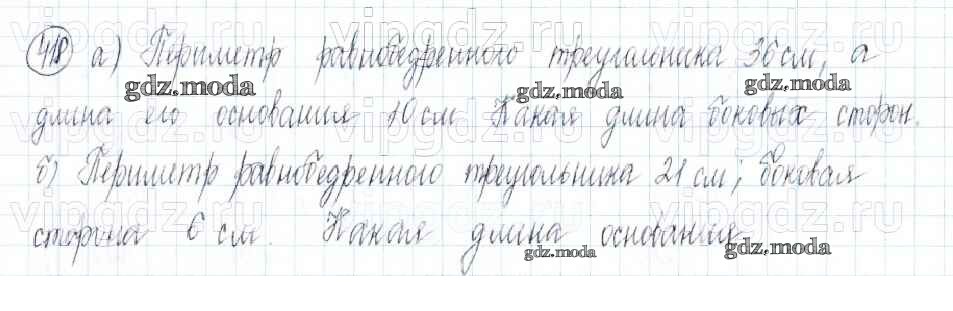 vipgdz.ru vipgdz.ru vipgdz.ru vipgdz.ru
418 а) Периметр равнобедренного треугольника 36 см, а
gdz.moda gdz.moda gdz.moda
длина его основания 10 см Какая длина боковых сторон.
vipgdz.ru vipgdz.ru vipgdz.ru vipgdz.ru
б) Периметр равнобедренного треугольника 21 см; боковая
vipgdz.ru vipgdz.ru vipgdz.ru vipgdz.ru
сторона 6 см. Какая длина основания
gdz.moda gdz.moda